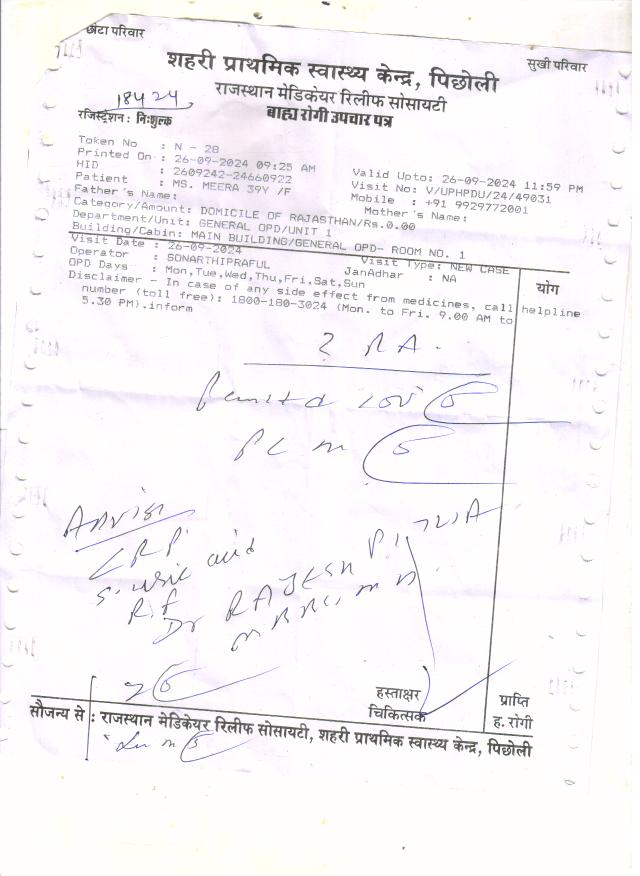 छोटा परिवार
सुखी परिवार
शहरी प्राथमिक स्वास्थ्य केन्द्र, पिछोली
राजस्थान मेडिकेयर रिलीफ सोसायटी
18424
रजिस्ट्रेशन: निःशुल्क
बाह्य रोगी उपचार पत्र
Token No : N - 28
Printed On : 26-09-2024 09:25 AM Valid Upto: 26-09-2024 11:59 PM
HID : 2609242-24660922 Visit No: V/UPHPDU/24/49031
Patient : MS. MEERA 39Y /F Mobile : +91 9929772001
Father's Name: Mother's Name:
Category/Amount: DOMICILE OF RAJASTHAN/Rs.0.00
Department/Unit: GENERAL OPD/UNIT 1
Building/Cabin: MAIN BUILDING/GENERAL OPD- ROOM NO. 1
Visit Date : 26-09-2024 Visit Type: NEW CASE
Operator : SONARTHIPRAFUL JanAdhar : NA
OPD Days : Mon,Tue,Wed,Thu,Fri,Sat,Sun
योग
Disclaimer - In case of any side effect from medicines, call helpline
number (toll free): 1800-180-3024 (Mon. to Fri. 9.00 AM to
5.30 PM).inform
? RA.
CRP
S. uric acid
R.f
Dr RAJESH
हस्ताक्षर
चिकित्सक
प्राप्ति
ह. रोगी
सौजन्य से : राजस्थान मेडिकेयर रिलीफ सोसायटी, शहरी प्राथमिक स्वास्थ्य केन्द्र, पिछोली